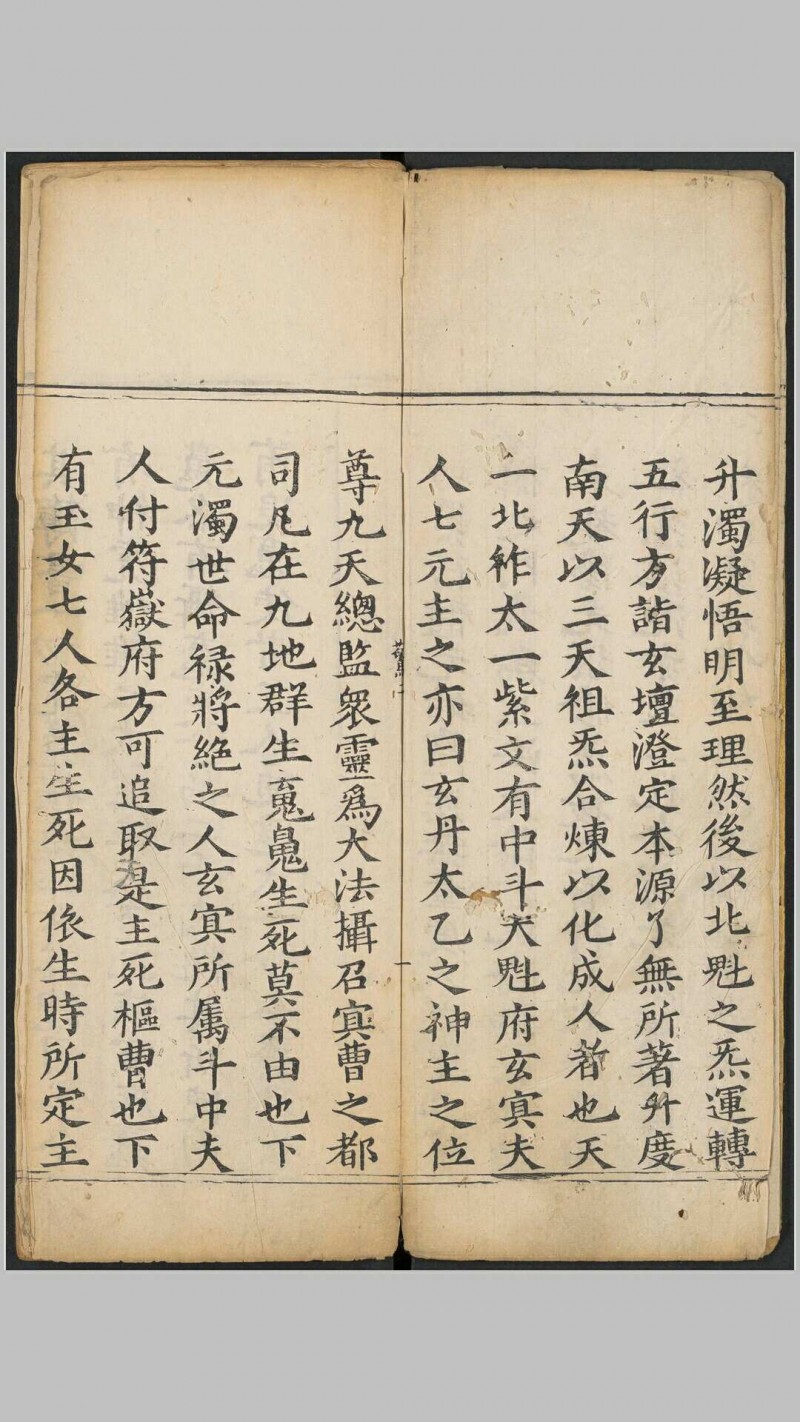 升濁凝悟明至理然後以北魁之炁運轉
五行方詣玄壇澄定本源了無所著升度
南天以三天祖炁合煉以化成人者也天
一北祚太一紫文有中斗大魁府玄寞夫
人七元主之亦曰玄丹太乙之神主之位
尊九天總監衆靈爲大法攝召寞曹之都
司凡在九地群生䰟鬼生死莫不由也下
元濁世命禄將絶之人玄寞所属斗中夫
人付符嶽府方可追取是主死樞曹也下
有玉女七人各主生死因依生時所定主